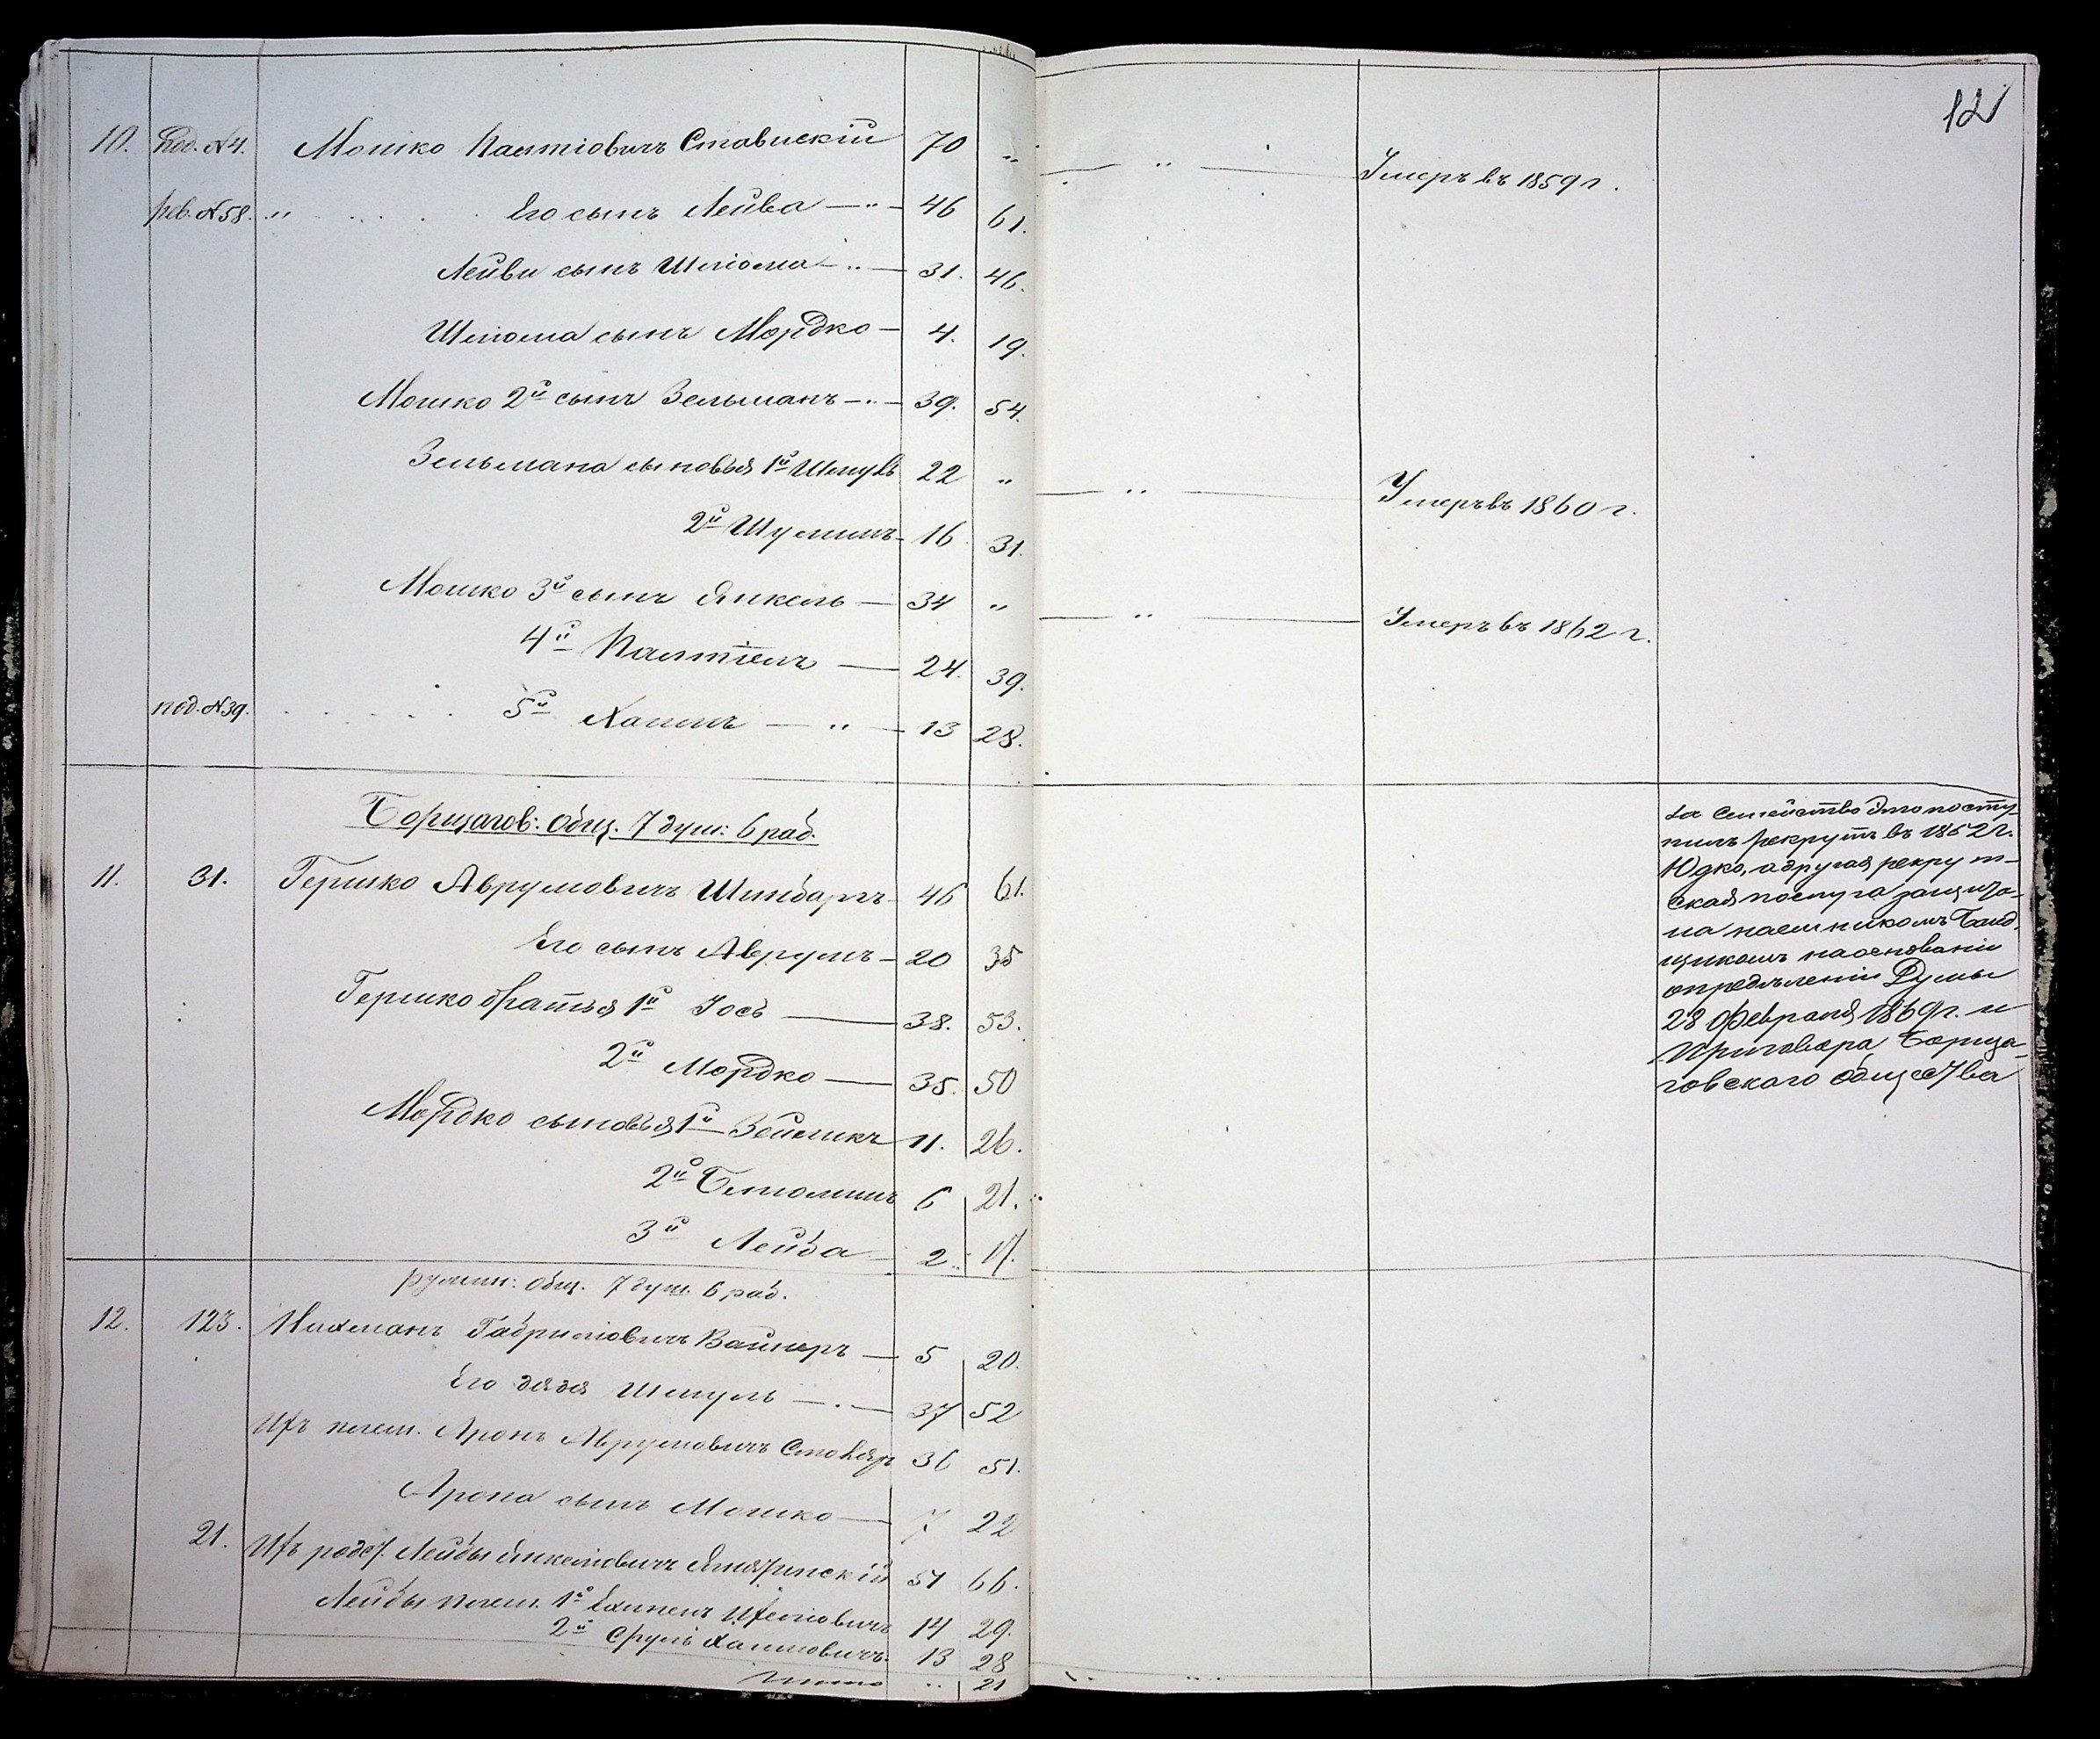 12
10. Под. №4. Мошко Палтіовичъ Ставискій 70 „ — „ — Умеръ въ 1859 г.
рев. №58. „ Его сынъ Лейва — „ — 46 61.
Лейви сынъ Шліома — „ — 31. 46.
Шліома сынъ Мордко — 4. 19.
Мошко 2й сынъ Зельманъ — „ — 39. 54.
Зельмана сыновья 1й Шмуль 22 „ — „ — Умеръ въ 1860 г.
2й Шулимъ — 16 31.
Мошко 3й сынъ Янкель — 34 „ — „ — Умеръ въ 1862 г.
4й Палтіель — 24. 39.
под. №39. 5й Хаимъ — „ — 13 28.
Борщагов: общ. 7 душ: 6 раб.
11. 31. Гершко Аврумовичъ Шинбаргъ 46 61.
Его сынъ Аврумъ — 20 35
Гершко братья 1й Іось — 38. 53.
2й Мордко — 35. 50
Мордко сыновья 1й Зейликъ 11. 26.
2й Беніоминъ 6 21.
3й Лейба 2 17.
за семейство это посту-
пилъ рекрутъ въ 1862 г.
Юдко, а другая рекрут-
ская послуга защита-
на наемникомъ
на основаніи
опредѣленія Думы
28 февраля 1869 г. и
приговора Борща-
говскаго общества
ружин: общ. 7 душ. 6 раб.
12. 123. Нахманъ Габриліовичъ Вайнеръ — 5 20.
Его дядя Шмуль — „ — 37 52
Ихъ плем. Аронъ Аврумовичъ Столяръ 36 51.
Арона сынъ Мошко — 7 22
21. Ихъ родст. Лейбы Янкеліовичъ 51 66.
Лейбы плем. 1й 14 29.
2й Сруль Хаимовичъ 13 28
Итого „ 21